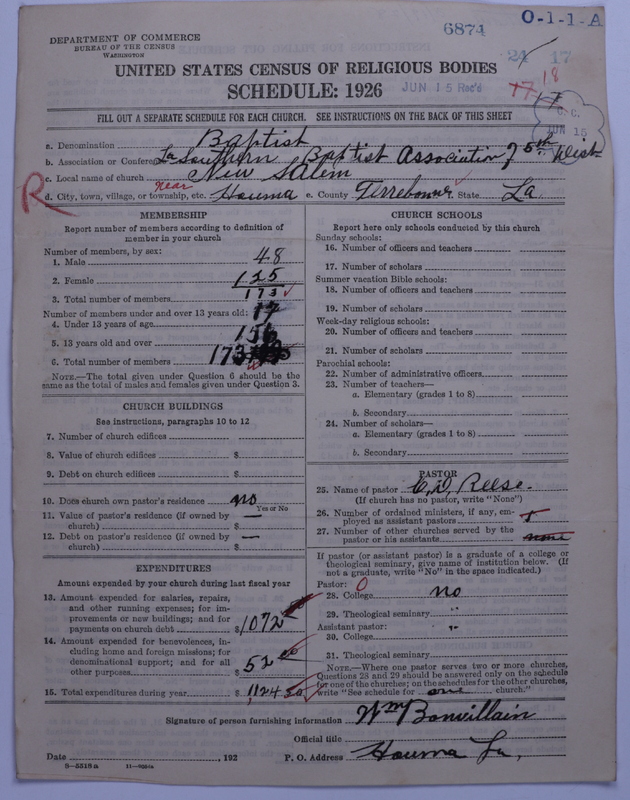 6874
O-1-1-A
DEPARTMENT OF COMMERCE
BUREAU OF THE CENSUS
WASHINGTON
24 17
UNITED STATES CENSUS OF RELIGIOUS BODIES
SCHEDULE: 1926
JUN 15 Rec'd
17 18
17
FILL OUT A SEPARATE SCHEDULE FOR EACH CHURCH. SEE INSTRUCTIONS ON THE BACK OF THIS SHEET
JUN 15
a. Denomination Baptist
b. Association or Conference La Southern Baptist Association of 5th Dist
c. Local name of church New Salem
R
d. City, town, village, or township, etc. near Houma e. County Terrebonne State La.
MEMBERSHIP
Report number of members according to definition of
member in your church
Number of members, by sex:
1. Male 48
2. Female 125
3. Total number of members 173
Number of members under and over 13 years old:
4. Under 13 years of age 17
5. 13 years old and over 156
6. Total number of members 173
NOTE.—The total given under Question 6 should be the
same as the total of males and females given under Question 3.
CHURCH BUILDINGS
See instructions, paragraphs 10 to 12
7. Number of church edifices
8. Value of church edifices $
9. Debt on church edifices $
10. Does church own pastor's residence no
Yes or No
11. Value of pastor's residence (if owned by
church) $ —
12. Debt on pastor's residence (if owned by
church) $ —
EXPENDITURES
Amount expended by your church during last fiscal year
13. Amount expended for salaries, repairs,
and other running expenses; for im-
provements or new buildings; and for
payments on church debt $1072
14. Amount expended for benevolences, in-
cluding home and foreign missions; for
denominational support; and for all
other purposes $52
15. Total expenditures during year $1124
CHURCH SCHOOLS
Report here only schools conducted by this church
Sunday schools:
16. Number of officers and teachers
17. Number of scholars
Summer vacation Bible schools:
18. Number of officers and teachers
19. Number of scholars
Week-day religious schools:
20. Number of officers and teachers
21. Number of scholars
Parochial schools:
22. Number of administrative officers
23. Number of teachers—
a. Elementary (grades 1 to 8)
b. Secondary
24. Number of scholars—
a. Elementary (grades 1 to 8)
b. Secondary
PASTOR
25. Name of pastor C. D. Reese.
(If church has no pastor, write "None")
26. Number of ordained ministers, if any, em-
ployed as assistant pastors
27. Number of other churches served by the
pastor or his assistants none
If pastor (or assistant pastor) is a graduate of a college or
theological seminary, give name of institution below. (If
not a graduate, write "No" in the space indicated.)
Pastor: 0
28. College no
29. Theological seminary "
Assistant pastor: "
30. College
31. Theological seminary
NOTE.—Where one pastor serves two or more churches,
Questions 28 and 29 should be answered only on the schedule
for one of the churches; on the schedules for the other churches,
write "See schedule for one church."
Signature of person furnishing information Wm Bonvillain
Official title
Date , 192 P. O. Address Houma La,
8—5318a